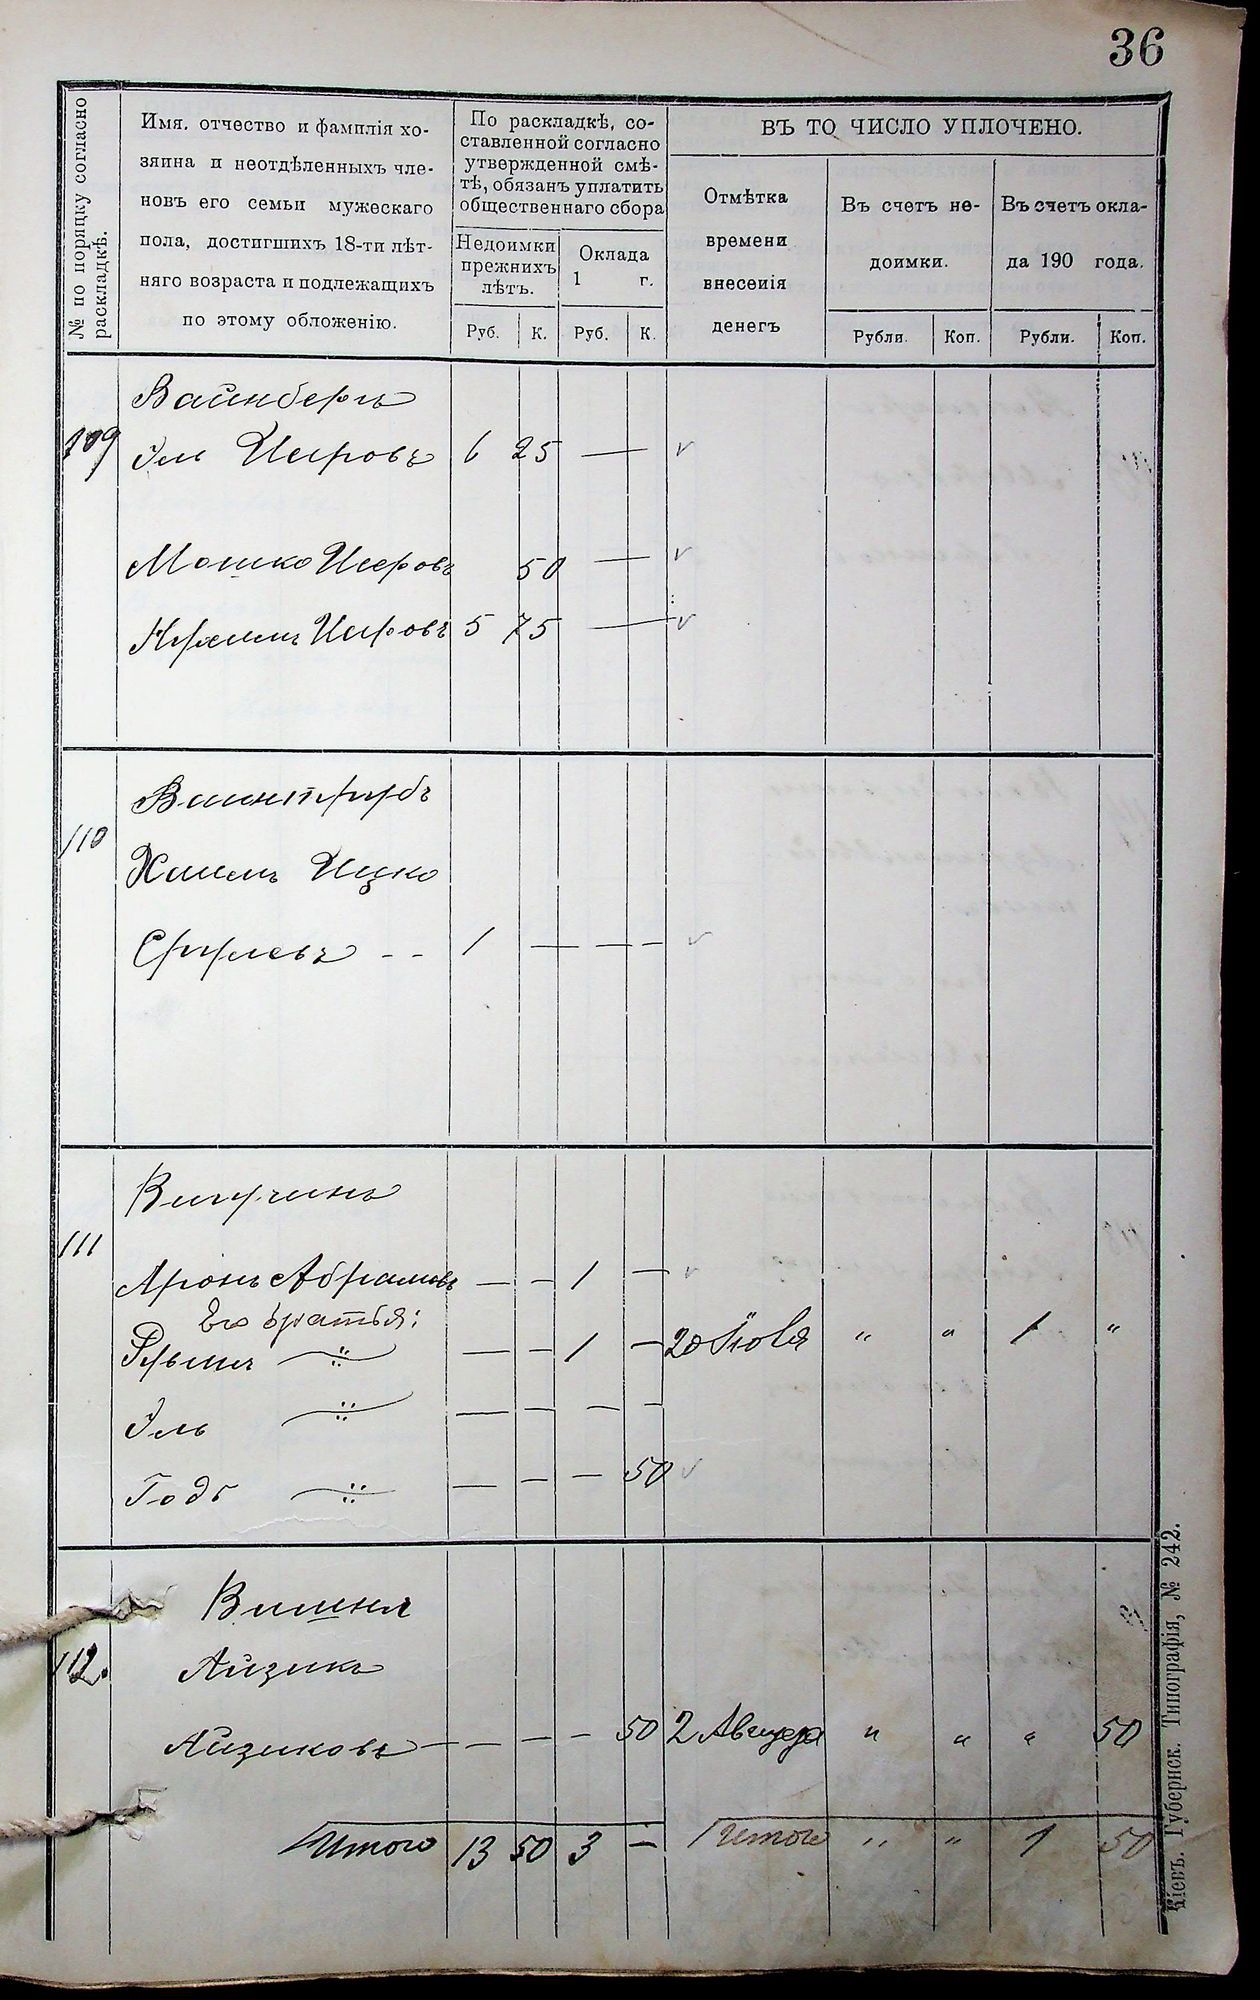 36
№ по порядку согласно
раскладкѣ.
Имя, отчество и фамилія хо-
зяина и неотдѣленныхъ чле-
новъ его семьи мужескаго
пола, достигшихъ 18-ти лѣт-
няго возраста и подлежащихъ
по этому обложенію.
По раскладкѣ, со-
ставленной согласно
утвержденной смѣ-
тѣ, обязанъ уплатить
общественнаго сбора
Недоимки
прежнихъ
лѣтъ.
Оклада
1 г.
Руб. К. Руб. К.
ВЪ ТО ЧИСЛО УПЛОЧЕНО.
Отмѣтка
времени
внесенія
денегъ
Въ счетъ не-
доимки.
Въ счетъ окла-
да 190 года.
Рубли. Коп. Рубли. Коп.
Вайнберъ
109 Іль 6 25 —
Мошко 50 —
5 75 —
110
Ицко
1 — — —
111
Аронъ Абрамовъ — — 1 —
Его братья:
— — 1 — 20 " " 1 "
Іль — — — —
— — — 50
Вишня
112. Айзикъ
Айзиковъ — — — 50 2 Августа " " " 50
Итого 13 50 3 — Итого " " 1 50
Кіевъ. Губернск. Типографія, № 242.